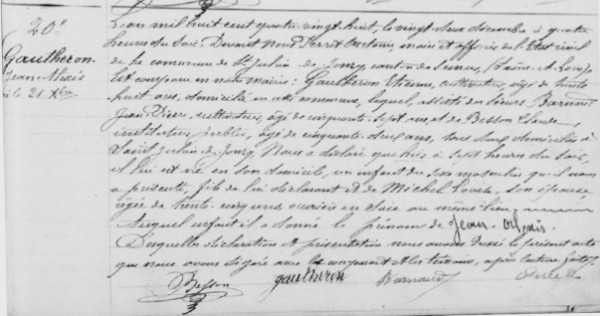 20e
Gautheron
Jean Alexis
né le 21 Xbre
L'an mil huit cent quatre vingt huit, le vingt deux décembre à quatre
heures du soir. Devant Nous Perret Antony maire et officier de l'état civil
de la commune de St Julien de Jonzy, canton de Semur, Saône et Loire
est comparu en notre mairie: Gautheron Etienne, cultivateur, âgé de trente
huit ans, domicilié en cette commune, lequel, assisté des sieurs Barnaud
Jean Pierre, cultivateur, âgé de cinquante sept ans, et de Besson Claude
instituteur public, âgé de cinquante deux ans, tous deux domiciliés à
Saint Julien de Jonzy, Nous a déclaré que hier à sept heures du soir,
il lui est né en son domicile, un enfant du sexe masculin qu'il nous
a présenté, fils de lui déclarant et de Michel Louise, son épouse
âgée de trente cinq ans ouvrière en soie au même lieu,
Auquel enfant il a donné le prénoms de Jean Alexis.
Desquelles déclaration et présentation nous avons dressé le présent acte
que nous avons signé avec le comparant et les témoins, après lecture faite.
Besson gautheron Barnaud Perret